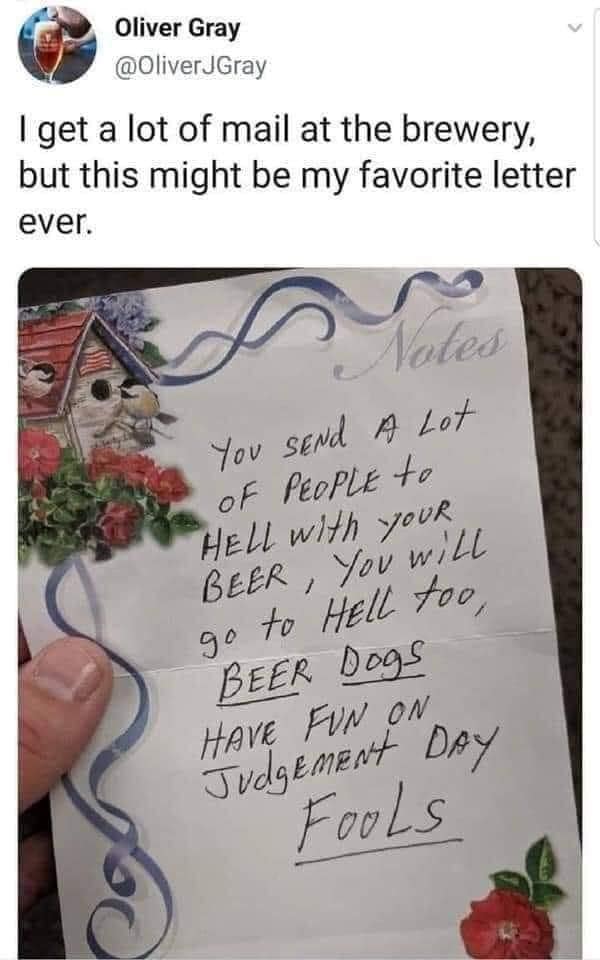 Oliver Gray
@OliverJGray
I get a lot of mail at the brewery,
but this might be my favorite letter
ever.
Notes
You SENd A Lot
oF PEOPLE to
HELL with youR
BEER, You will
go to HEll too,
BEER DogS
HAVE FUN ON
JudgEMENt DAY
FooLS